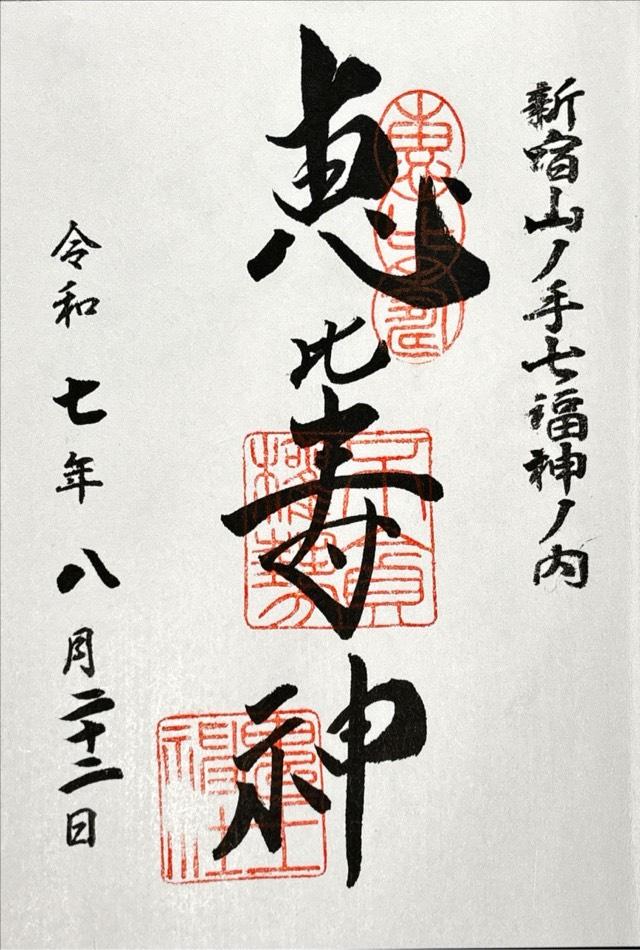 新宿山ノ手七福神ノ内
恵比寿神
恵比寿
令和七年八月二十二日